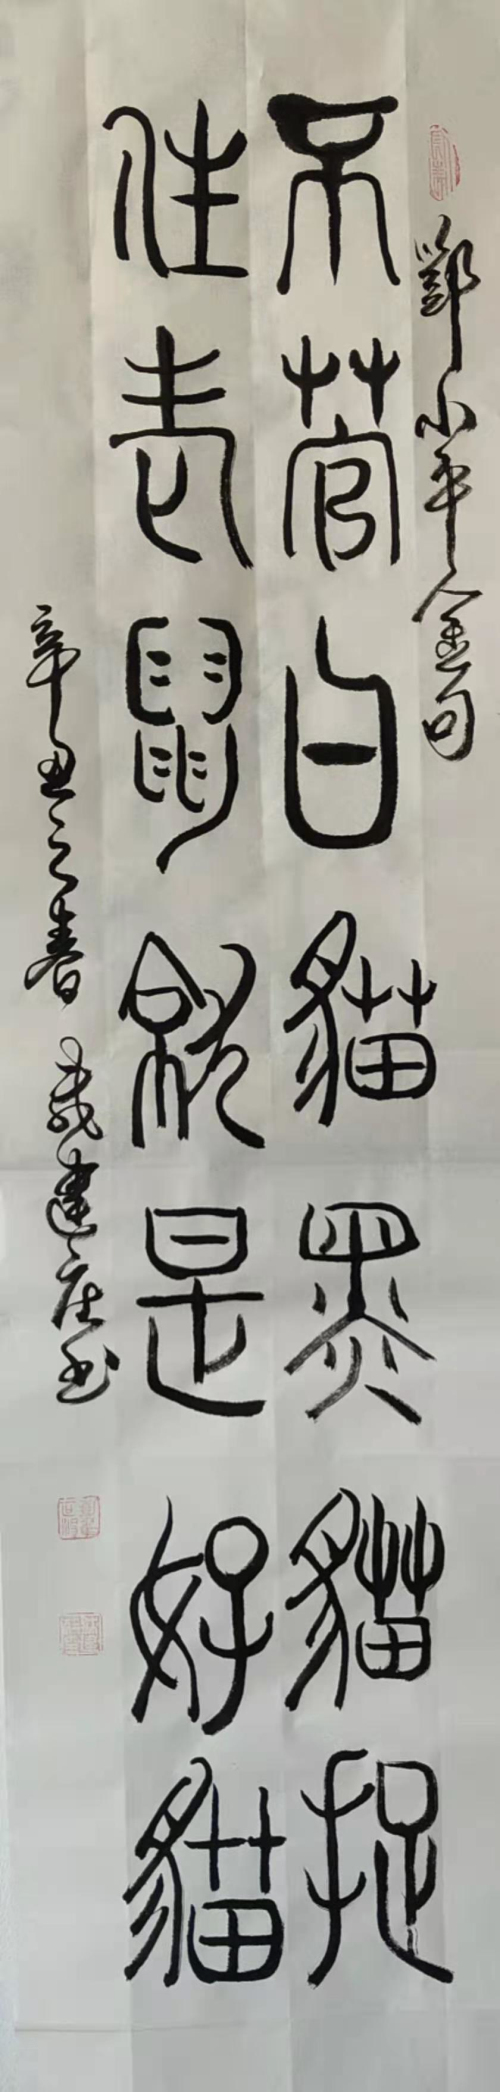 鄧小平金句
不菅白貓黑貓捉
住老鼠就是好貓
辛丑之春 戴建庄书